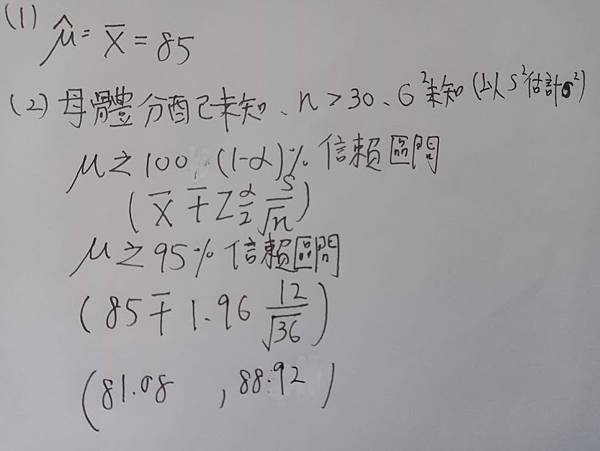 (1) μ̂ = x̄ = 85
(2) 母體分配未知、n>30、σ²未知(以S²估計σ²)
μ之100(1-α)% 信賴區間
(x̄ ∓ Z α/2 S/√n)
μ之95% 信賴區間
(85 ∓ 1.96 12/√36)
(81.08 , 88.92)